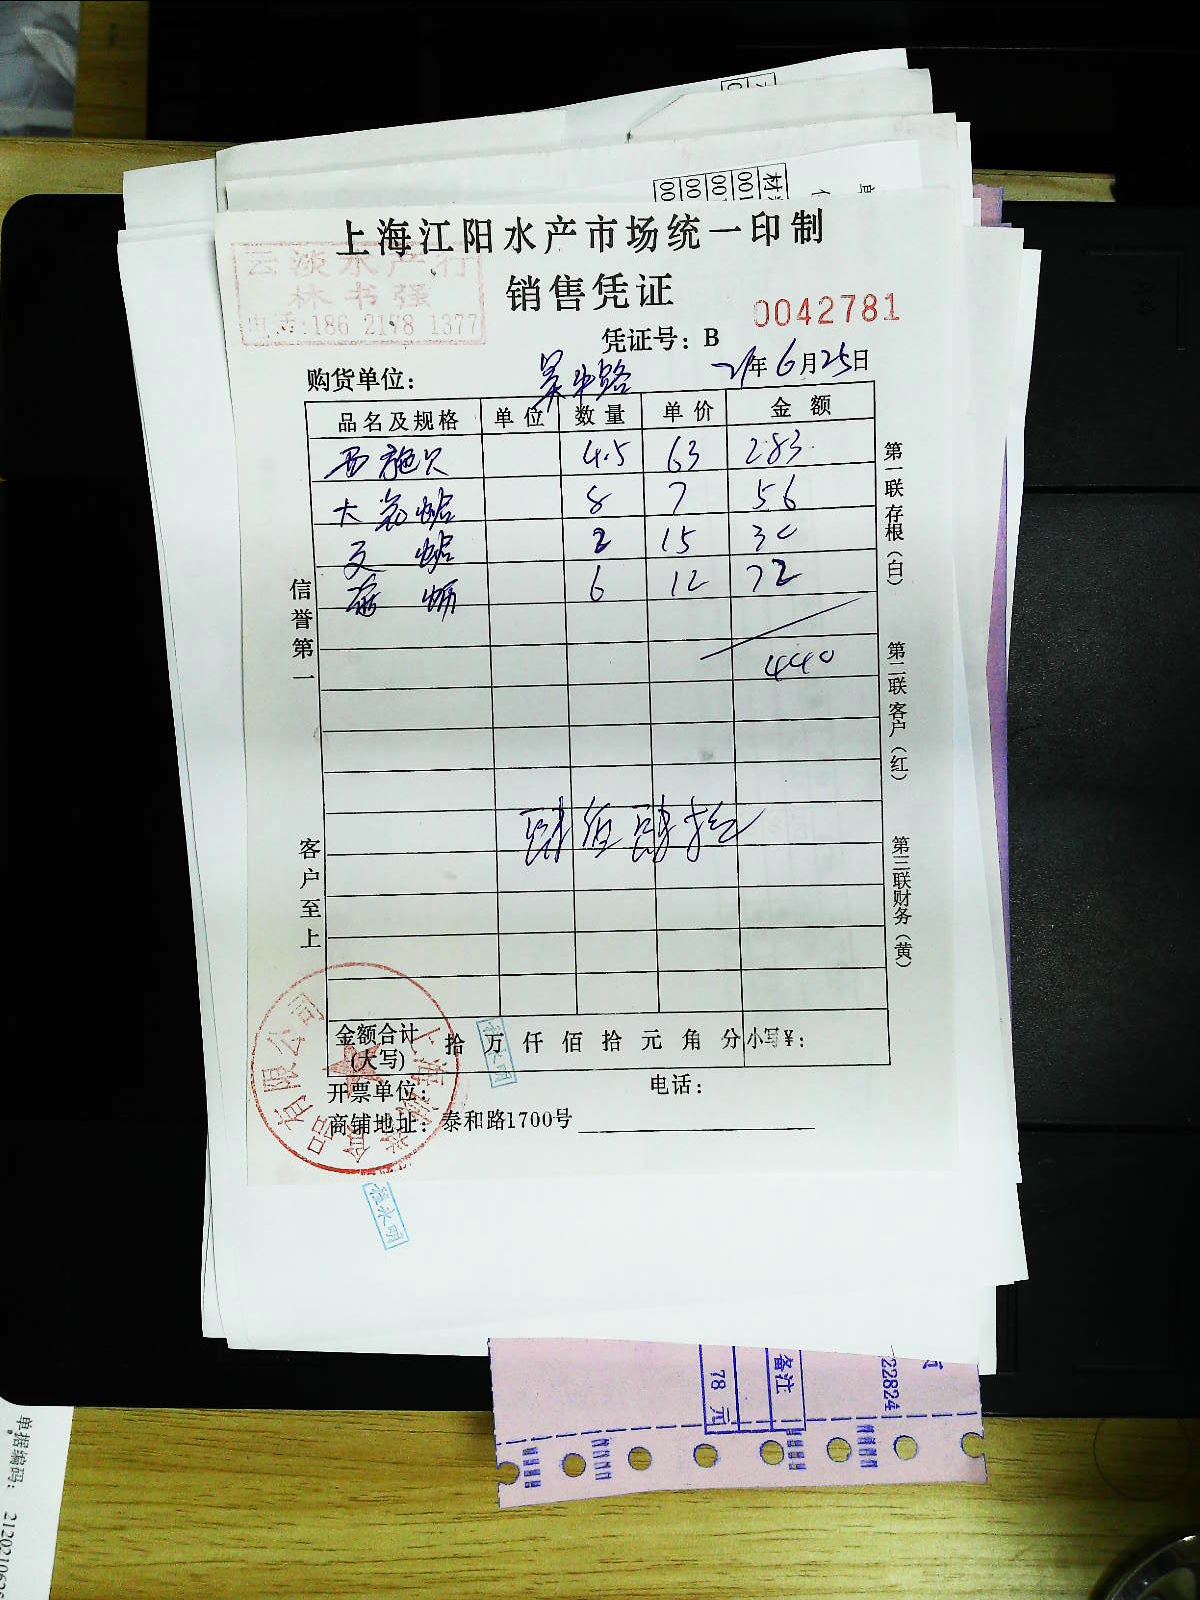 上海江阳水产市场统一印制
云淡水产行
林书强
电话:186 2178 1377
销售凭证
0042781
凭证号: B
购货单位: 吴中路 21年6月25日
品名及规格 单位 数量 单价 金额
4.5 63 283
大 蛤 8 7 56
文 蛤 2 15 30
6 12 72
440
肆佰肆拾
信誉第一
客户至上
第一联存根(白)
第二联客户(红)
第三联财务(黄)
金额合计(大写) 拾 万 仟 佰 拾 元 角 分 小写¥:
开票单位: 电话:
商铺地址: 泰和路1700号
食品有限公司
上海
永明
备注
78 元
22824
单据编码: